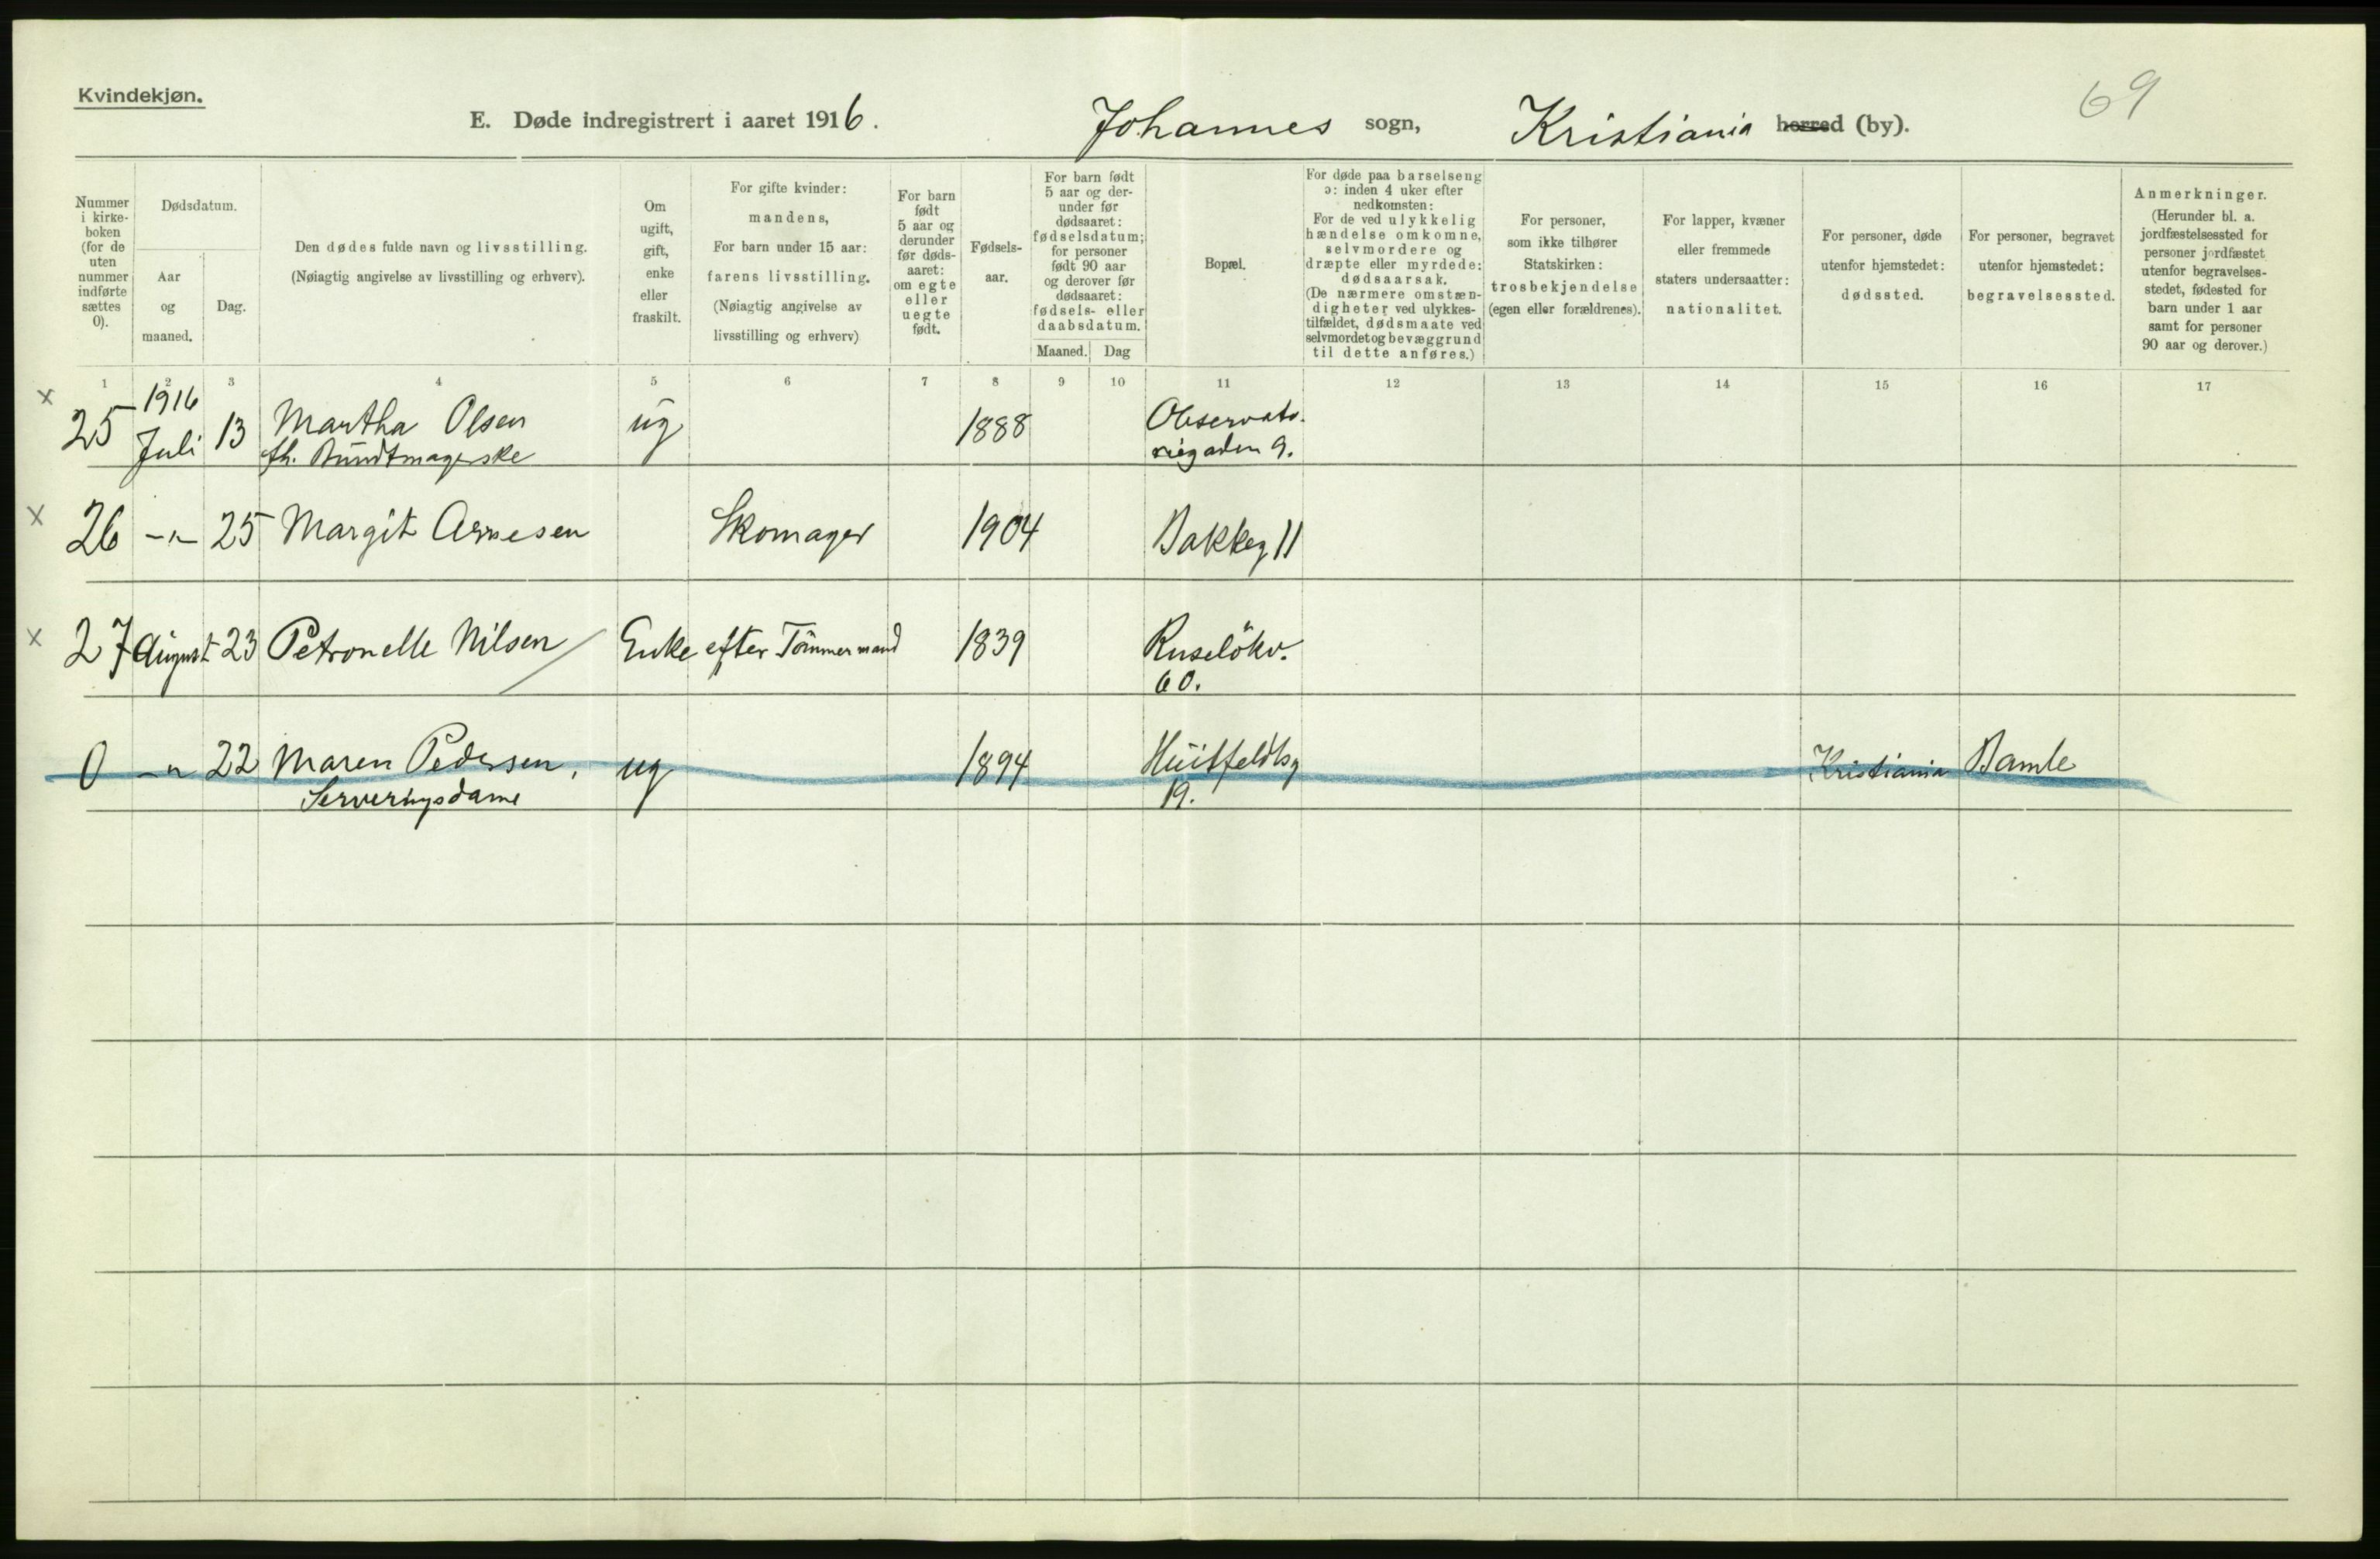 Kvindekjøn.
69
E. Døde indregistrert i aaret 1916. Johannes sogn, Kristiania herred (by).
Nummer
i kirke-
boken
(for de
uten
nummer
indførte
sættes
0).
Dødsdatum.
Aar
og
maaned.
Dag.
Den dødes fulde navn og livsstilling.
(Nøiagtig angivelse av livsstilling og erhverv).
Om
ugift,
gift,
enke
eller
fraskilt.
For gifte kvinder:
mandens,
For barn under 15 aar:
farens livsstilling.
(Nøiagtig angivelse av
livsstilling og erhverv)
For barn
født
5 aar og
derunder
før døds-
aaret:
om egte
eller
uegte
født.
Fødsels-
aar.
For barn født
5 aar og der-
under før
dødsaaret:
fødselsdatum;
for personer
født 90 aar
og derover før
dødsaaret:
fødsels- eller
daabsdatum.
Maaned. Dag
Bopæl.
For døde paa barselseng
ɔ: inden 4 uker efter
nedkomsten:
For de ved ulykkelig
hændelse omkomne,
selvmordere og
dræpte eller myrdede:
dødsaarsak.
(De nærmere omstæn-
digheter ved ulykkes-
tilfældet, dødsmaate ved
selvmordet og bevæggrund
til dette anføres.)
For personer,
som ikke tilhører
Statskirken:
trosbekjendelse
(egen eller forældrenes).
For lapper, kvæner
eller fremmede
staters undersaatter:
nationalitet.
For personer, døde
utenfor hjemstedet:
dødssted.
For personer, begravet
utenfor hjemstedet:
begravelsessted.
Anmerkninger.
(Herunder bl. a.
jordfæstelsessted for
personer jordfæstet
utenfor begravelses-
stedet, fødested for
barn under 1 aar
samt for personer
90 aar og derover.)
1 2 3 4 5 6 7 8 9 10 11 12 13 14 15 16 17
x 25 1916 Juli 13 Martha Olsen ug 1888 Observato-
fh. Bundtmagerske riegaden 9.
x 26 -"- 25 Margit Arnesen Skomager 1904 Bakkeg 11
x 27 August 23 Petronelle Nilsen Enke efter Tömmermand 1839 Ruselökv.
60.
0 -"- 22 Maren Pedersen, ug 1894 Huitfeldtsg Kristiania Bamle
Serveringsdame 19.